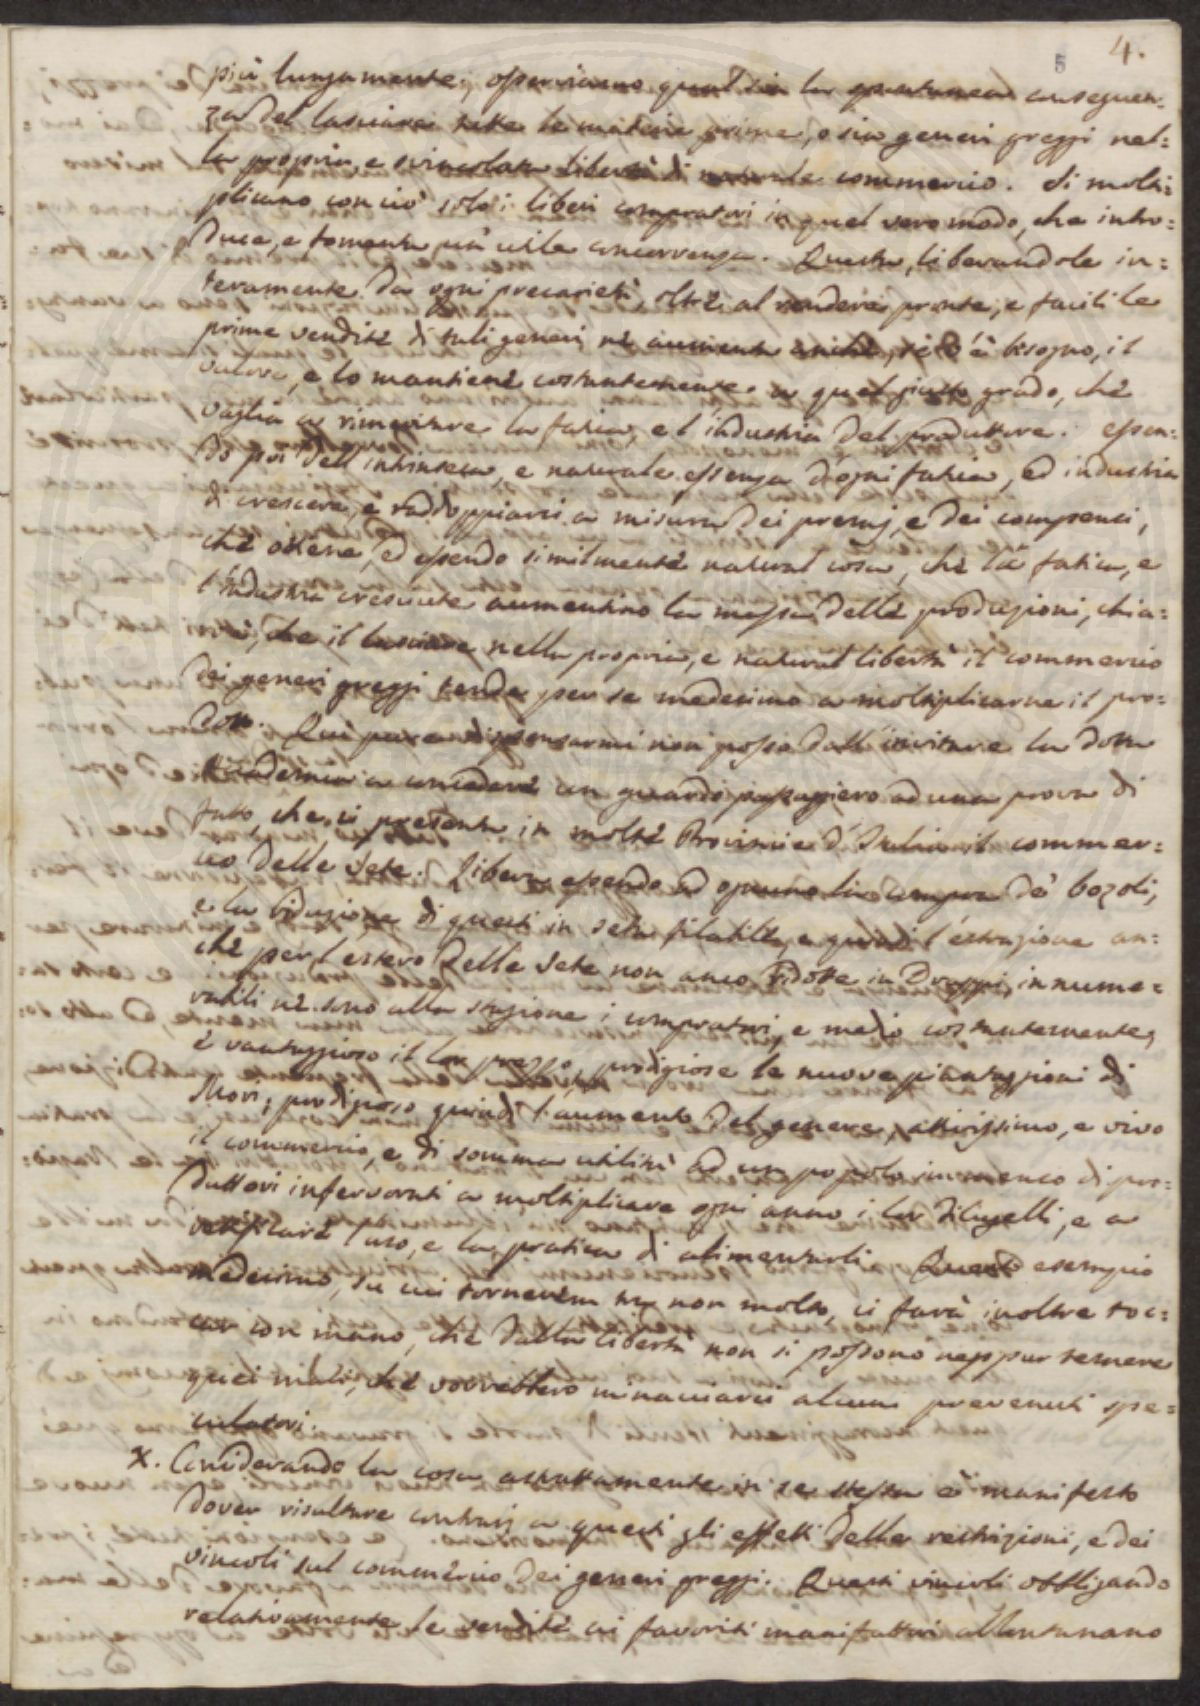 5 4.
più lungamente, osserviamo qual sia la spontanea conseguen=
za del lasciare tutte le materie prime, o sia generi greggi nel=
la propria, e svincolata libertà di naturale commercio. Si molti=
plicano con ciò solo i liberi compratori in quel vero modo, che intro=
duce, e fomenta più utile concorrenza. Questa, liberandole in=
teramente da ogni precarietà, oltre al rendere pronte, e facili le
prime vendite di tali generi ne aumenta anche, se v'è bisogno, il
valore, e lo mantiene costantemente a quel giusto grado, che
vaglia a rimeritare la fatica, e l'industria del produttore. Essen=
do poi dell'intrinseca, e naturale essenza d'ogni fatica, ed industria
di crescere, e raddoppiarsi a misura dei premj, e dei compensi,
che ottiene, ed essendo similmente natural cosa, che la fatica, e
l'industria cresciute aumentino la massa delle produzioni, chia=
che il lasciare nella propria, e natural libertà il commercio
dei generi greggi tenda per se medesimo a moltiplicarne il pro=
dotto. Quì pure dispensarmi non posso dall'invitare la dotta
Accademia a concedere un guardo passaggiero ad una prova di
fatto, che ci presenta in molte Provincie d'Italia il commer=
cio delle Sete. Libera essendo ad ognuno la compra de' bozoli,
e la riduzione di questi in seta filabile, e quindi l'estrazione an=
che per l'estero delle Sete non anco ridotte in Drappi, innume=
rabili ne sono alla stagione i compratori, e medio costantemente,
è vantaggioso il lor prezzo, prodigiose le nuove piantaggioni di
Mori; prodigioso quindi l'aumento del genere, attivissimo, e vivo
il commercio, e di somma utilità ad un popolo immenso di pro=
duttori infervorati a moltiplicare ogni anno i lor Filugelli, e a
l'uso, e la pratica di alimentarli. Questo esempio
medesimo, su cui tornerem tra non molto, ci farà inoltre toc=
car con mano, che dalla libertà non si possono neppur temere
quei mali, che vorrebbero minacciarci alcuni prevenuti spe=
culatori.
X. Considerando la cosa astrattamente in se stessa è manifesto
dover risultare contrarj a questi gli effetti delle restrizioni, e dei
vincoli sul commercio dei generi greggi. Questi vincoli obbligando
relativamente le vendite ai favoriti manifattori allontanano